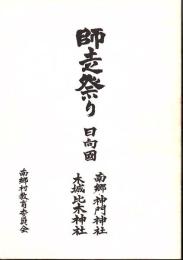 師走祭り
日向國
南郷 神門神社
木城 比木神社
南郷村教育委員会